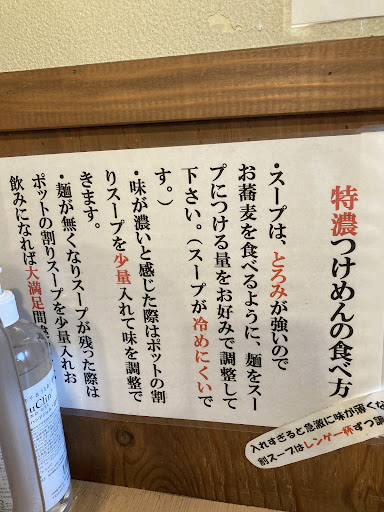 特濃つけめんの食べ方
・スープは、とろみが強いので
お蕎麦を食べるように、麺をスー
プにつける量をお好みで調整して
下さい。（スープが冷めにくいで
す。）
・味が濃いと感じた際はポットの割
りスープを少量入れて味を調整で
きます。
・麺が無くなりスープが残った際は
ポットの割りスープを少量入れお
飲みになれば大満足間
入れすぎると急激に味が薄くな
割スープはレンゲ一杯ずつ
uClio